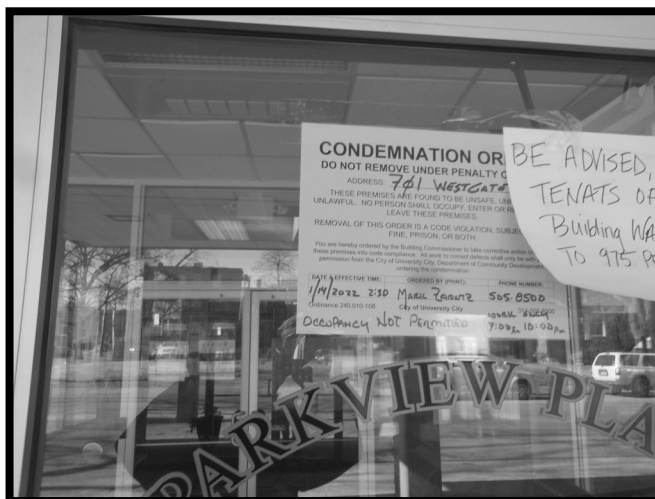 CONDEMNATION OR
DO NOT REMOVE UNDER PENALTY O
ADDRESS: 701 WESTGATE
THESE PREMISES ARE FOUND TO BE UNSAFE, UN
UNLAWFUL. NO PERSON SHALL OCCUPY, ENTER OR RE
LEAVE THESE PREMISES.
REMOVAL OF THIS ORDER IS A CODE VIOLATION, SUBJE
FINE, PRISON, OR BOTH.
You are hereby ordered by the Building Commissioner to take corrective action to
these premises into code compliance. All work to correct defects shall only be with
permission from the City of University City, Department of Community Development
ordering the condemnation.
DATE & EFFECTIVE TIME: ORDERED BY (PRINT): PHONE NUMBER:
1/14/2022 2:30 MARK 505.8500
Ordinance 240.010-106 City of University City
OCCUPANCY NOT PERMITTED 7:00 AM 10:00 PM
BE ADVISED,
TENATS OF
Building WA
TO 975 P
PARKVIEW PLA